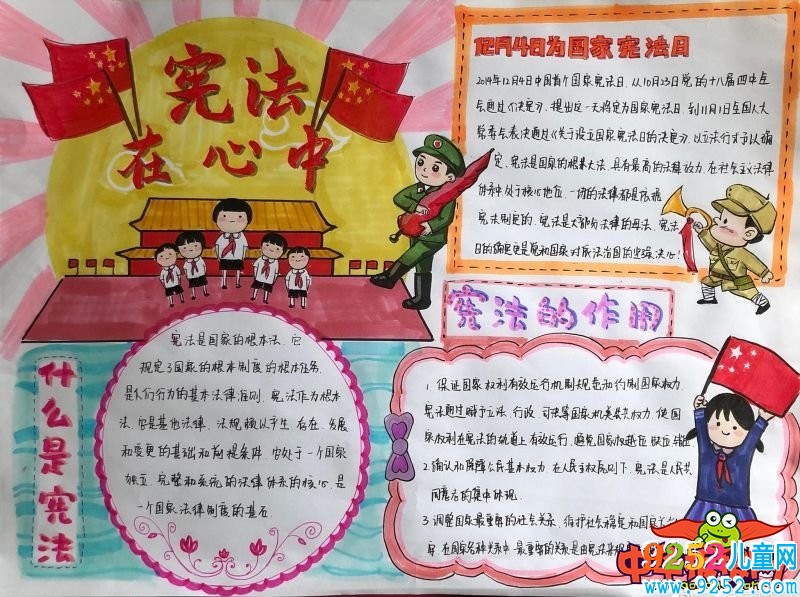 宪法
在心中
12月4日为国家宪法日
2014年12月4日中国首个国家宪法日,从10月23日党的十八届四中全
会通过《决定》,提出这一天将定为国家宪法日,到11月1日全国人大
常委会表决通过《关于设立国家宪法日的决定》,以立法行式予以确
定、宪法是国家的根本大法,具有最高的法律效力,在社会主义法律
体系中处于核心地位,一切的法律都是依据
宪法制定的,宪法是大部分法律的母法,宪法
日的确定也是党和国家对依法治国的坚强决心!
宪法的作用
什么是宪法
宪法是国家的根本法,它
规定了国家的根本制度的根本任务,
是人们行为的基本法律准则,宪法作为根本
法,它是其它法律、法规赖以产生、存在、发展
和变更的基础和前提条件,它处于一个国家
独立、完整和系统的法律体系的核心,是
一个国家法律制度的基石
1.保证国家权利有效运行机制规范和约制国家权力,
宪法通过赋予立法、行政、司法等国家机关公共权力,使国
家权利在宪法的轨道上有效运行,避免国家权
2.确认和保障公民基本权力,在人民主权原则下,宪法是人民共
同意志的集中体现.
3.调整国家最重要的社会关系,维护社会稳定和国家
在国家各种关系中,最重要的关系是由宪法来
9252儿童网
www.9252.com